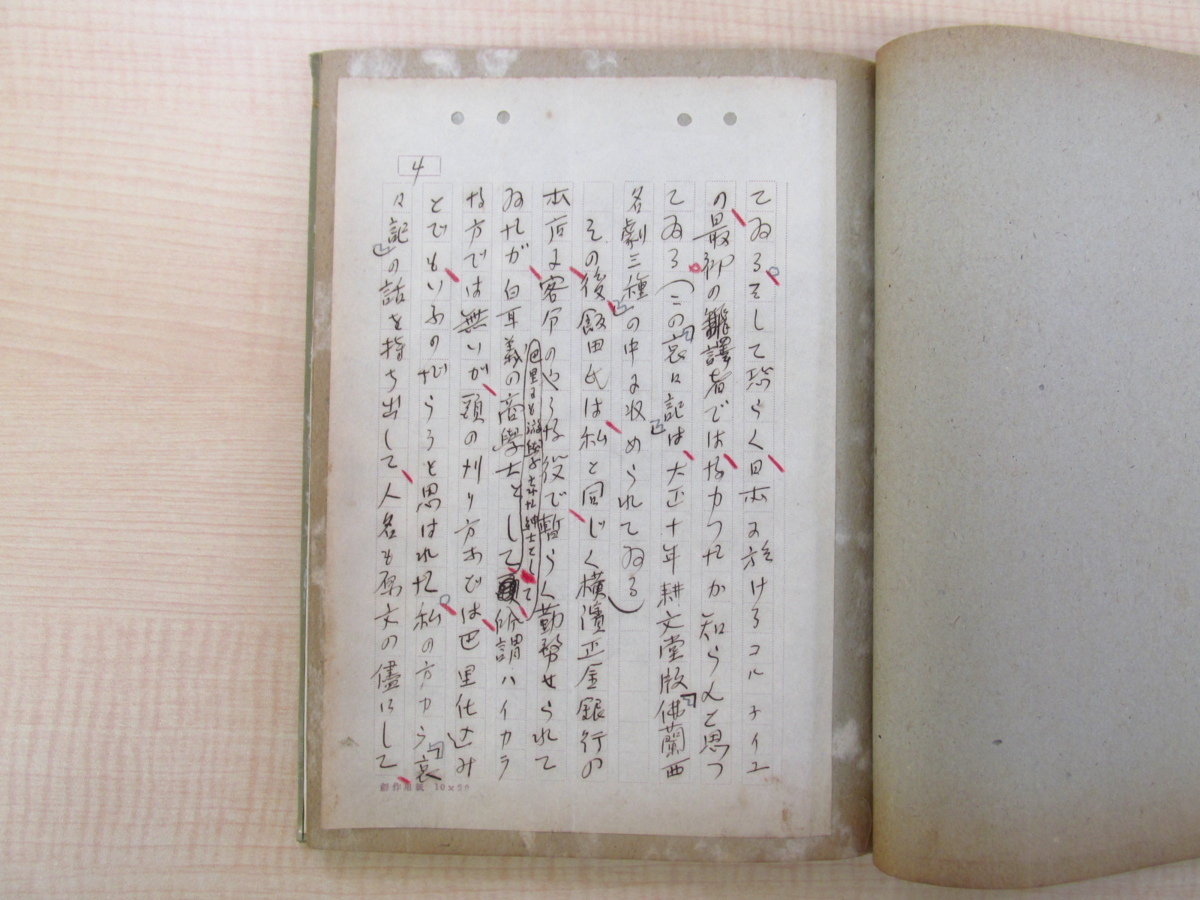 4
てゐるそして恐らく日本に於けるコルネイユ
の最初の飜譯者では勿かつたか知らんと思つ
てゐる（この「哀々記」は大正十年耕文堂版「佛蘭西
名劇三種」の中に收められてゐる）
その後飯田氏は私と同じく横濱正金銀行の
本店に客分のやうな役で暫らく勤務せられて
ゐたが白耳義の商學士として所謂ハイカラ
巴里にも遊學せられた紳士として
な方では無いが頭の刈り方などでは巴里仕込み
とでもいふのだらうと思はれた私の方から「哀
々記」の話を持ち出して人名も原文の儘にして
創作用紙 10×20